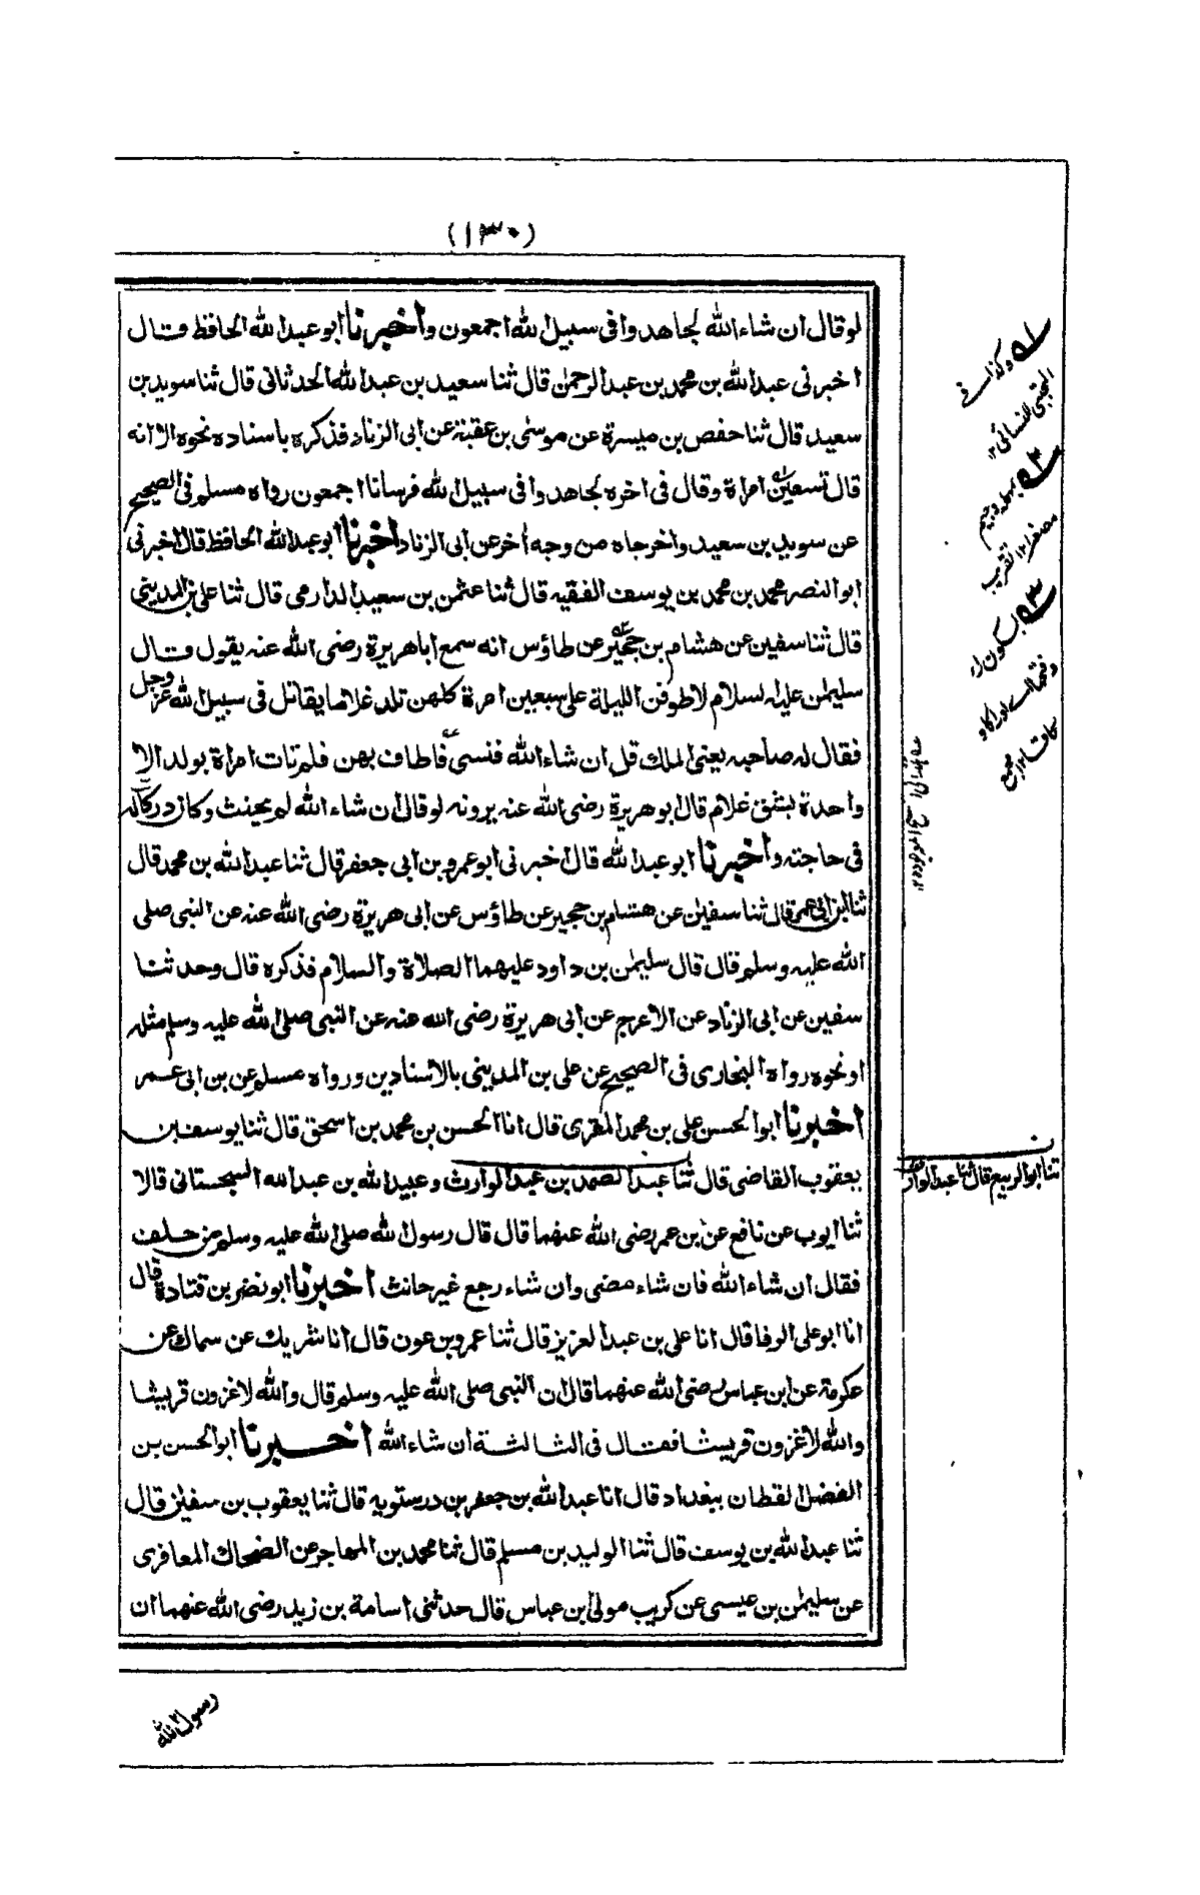 (١٣٠)
لو قال ان شاء الله لجاهدوا فى سبيل الله اجمعون واخبرنا ابو عبد الله الحافظ قال
اخبرنى عبد الله بن محمد بن عبد الرحمن قال ثنا سعيد بن عبد الله الحدثانى قال ثنا سويد بن
سعيد قال ثنا حفص بن ميسرة عن موسى بن عقبة عن ابى الزناد فذكره باسناده نحوه الا انه
قال تسعين امراة وقال فى اخره لجاهدوا فى سبيل الله فرسانا اجمعون رواه مسلم فى الصحيح
عن سويد بن سعيد واخرجاه من وجه أخر عن ابى الزناد اخبرنا ابو عبد الله الحافظ قال اخبرنى
ابو النصر محمد بن محمد بن يوسف الفقيه قال ثنا عثمن بن سعيد الدارمى قال ثنا على بن المدينى
قال ثنا سفين عن هشام بن حجير عن طاؤس انه سمع ابا هريرة رضى الله عنه يقول قال
سليمن عليه لسلام لاطوفن الليلة على سبعين امرة كلهن تلد غلاما يقاتل فى سبيل الله عز وجل
فقال له صاحبه يعنى الملك قل ان شاء الله فنسى فاطاف بهن فلم تات امراة بولد الا
واحدة بشق غلام قال ابو هريرة رضى الله عنه يرونه لو قال ان شاء الله لم يحنث وكان دركا له
فى حاجته واخبرنا ابو عبد الله قال اخبرنى ابو عمرو بن ابى جعفر قال ثنا عبد الله بن محمد قال
ثنا ابن ابى عمر قال ثنا سفين عن هشام بن حجير عن طاؤس عن ابى هريرة رضى الله عنه عن النبى صلى
الله عليه وسلم قال قال سليمن بن داود عليهما الصلاة والسلام فذكره قال وحدثنا
سفين عن ابى الزناد عن الاعرج عن ابى هريرة رضى الله عنه عن النبى صلى الله عليه وسلم مثله
او نحوه رواه البخارى فى الصحيح عن على بن المدينى بالاسنادين ورواه مسلم عن بن ابى عمر
اخبرنا ابو الحسن على بن محمد المقرى قال انا الحسن بن محمد بن اسحق قال ثنا يوسف بن
يعقوب القاضى قال ثنا عبد الصمد بن عبد الوارث وعبيد الله بن عبد الله السجستانى قالا
ثنا ايوب عن نافع عن بن عمر رضى الله عنهما قال قال رسول الله صلى الله عليه وسلم من حلف
فقال ان شاء الله فان شاء مضى وان شاء رجع غير حانث اخبرنا ابو نضر بن قتادة قال
انا ابو على الوفا قال انا على بن عبد العزيز قال ثنا عمرو بن عون قال انا شريك عن سماك عن
عكرمة عن ابن عباس رضى الله عنهما قال ان النبى صلى الله عليه وسلم قال والله لاغزون قريشا
والله لاغزون قريشا فقال فى الثالثة ان شاء الله اخبرنا ابو الحسن بن
الفضل القطان ببغداد قال انا عبد الله بن جعفر بن درستويه قال ثنا يعقوب بن سفين قال
ثنا عبد الله بن يوسف قال ثنا الوليد بن مسلم قال ثنا محمد بن المهاجر عن الضحاك المعافرى
عن سليمن بن عيسى عن كريب مولى ابن عباس قال حدثنى اسامة بن زيد رضى الله عنهما ان
رسول الله
وكذا فى
المجتبى للنسائى ١٢
مصغرا ١٢ تقريب
ثنا ابو الربيع قال ثنا عبد الوارث